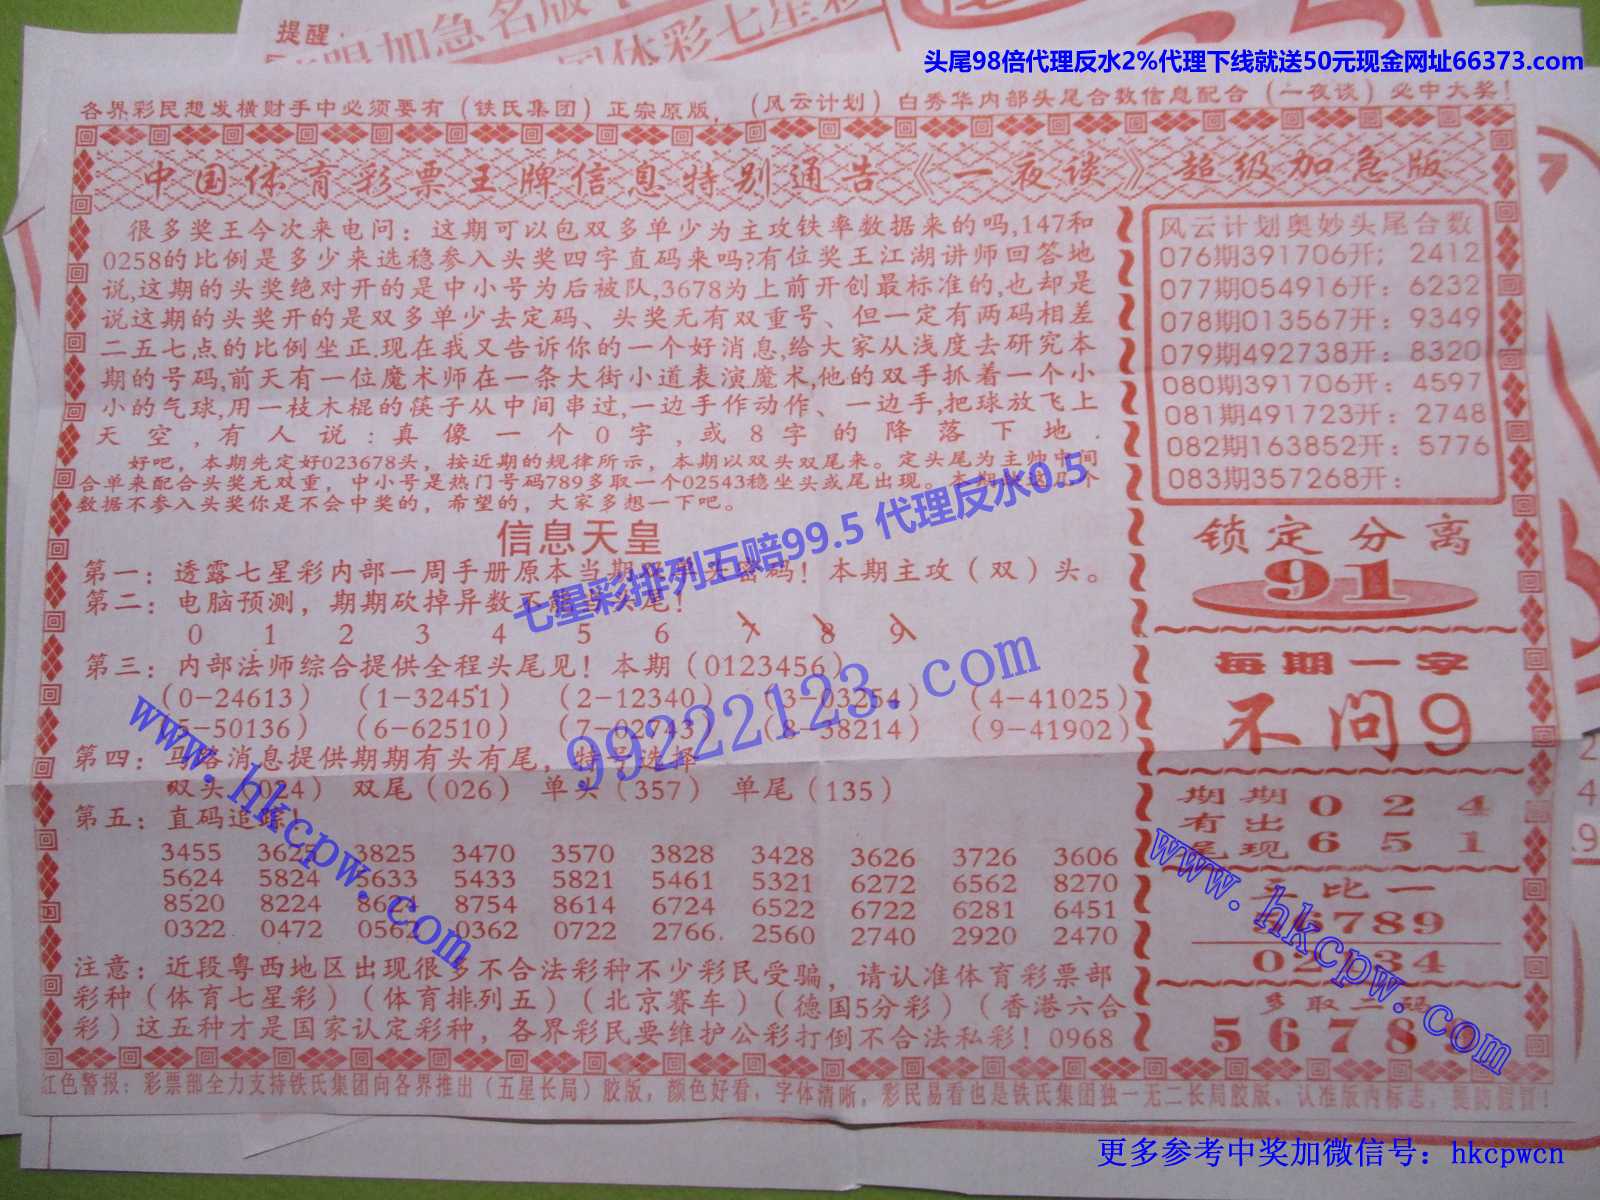 提醒
头尾98倍代理反水2%代理下线就送50元现金网址66373.com
各界彩民想发横财手中必须要有（铁氏集团）正宗原版，（风云计划）白秀华内部头尾合数信息配合（一夜谈）必中大奖！
中国体育彩票王牌信息特别通告《一夜谈》超级加急版
很多奖王今次来电问：这期可以包双多单少为主攻铁率数据来的吗,147和
0258的比例是多少来选稳参入头奖四字直码来吗?有位奖王江湖讲师回答地
说,这期的头奖绝对开的是中小号为后被队,3678为上前开创最标准的,也却是
说这期的头奖开的是双多单少去定码、头奖无有双重号、但一定有两码相差
二五七点的比例坐正.现在我又告诉你的一个好消息,给大家从浅度去研究本
期的号码,前天有一位魔术师在一条大街小道表演魔术,他的双手抓着一个小
小的气球,用一枝木棍的筷子从中间串过,一边手作动作、一边手,把球放飞上
天空,有人说:真像一个0字,或8字的降落下地.
好吧，本期先定好023678头，按近期的规律所示，本期以双头双尾来。定头尾为主帅中间
合单来配合头奖无双重，中小号是热门号码789多取一个02543稳坐头或尾出现。本期
数据不参入头奖你是不会中奖的，希望的，大家多想一下吧。
信息天皇
第一：透露七星彩内部一周手册原本当期密码！本期主攻（双）头。
第二：电脑预测，期期砍掉异数不能当头尾！
0 1 2 3 4 5 6 7 8 9
第三：内部法师综合提供全程头尾见！本期（0123456）
（0-24613）（1-32451）（2-12340）（3-03254）（4-41025）
（5-50136）（6-62510）（7-02743）（8-38214）（9-41902）
第四：马路消息提供期期有头有尾，特号选择
双头（024）双尾（026）单头（357）单尾（135）
第五：直码追踪！
3455 3625 3825 3470 3570 3828 3428 3626 3726 3606
5624 5824 5633 5433 5821 5461 5321 6272 6562 8270
8520 8224 8624 8754 8614 6724 6522 6722 6281 6451
0322 0472 0562 0362 0722 2766 2560 2740 2920 2470
注意：近段粤西地区出现很多不合法彩种不少彩民受骗，请认准体育彩票部
彩种（体育七星彩）（体育排列五）（北京赛车）（德国5分彩）（香港六合
彩）这五种才是国家认定彩种，各界彩民要维护公彩打倒不合法私彩！0968
风云计划奥妙头尾合数
076期391706开；2412
077期054916开：6232
078期013567开：9349
079期492738开：8320
080期391706开：4597
081期491723开：2748
082期163852开：5776
083期357268开：
锁定分离
91
每期一字
不问9
期期 0 2 4
有出
尾现 6 5 1
五比一
56789
02134
多取二码
5 6 7 8 9
红色警报：彩票部全力支持铁氏集团向各界推出（五星长局）胶版，颜色好看，字体清晰，彩民易看也是铁氏集团独一无二长局胶版，认准版内标志，提防假冒！
七星彩排列五赔99.5 代理反水0.5
99222123.com
www.hkcpw.com
www.hkcpw.com
更多参考中奖加微信号：hkcpwcn